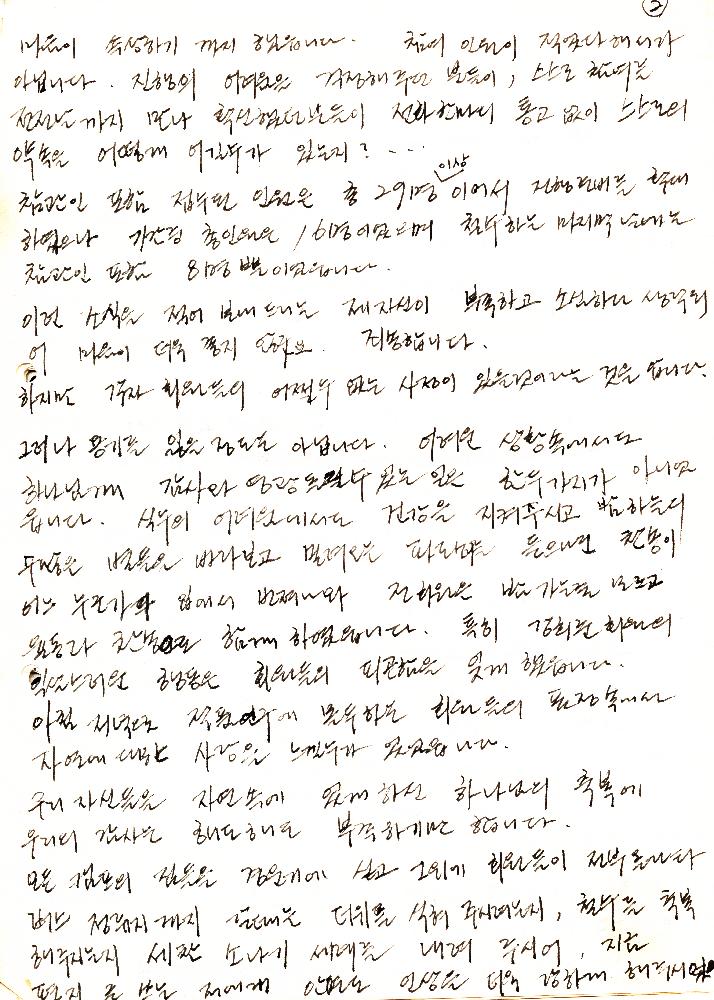 ②
마음이 속상하기 까지 했읍니다. 참여 인원이 적었다 해서가
아닙니다. 진행의 어려움을 걱정해주던 분들이, 스스로 참여를
전전날까지 만나 확신했던분들이 전화한마디 통고 없이 스스로의
약속을 어떻게 어길수가 있는지? ...
참관인 포함 접수된 인원은 총 291명 이상 이어서 진행준비를 확대
하였으나 기간중 총인원은 161명이었으며 철수하는 마지막날에는
참관인 포함 81명 뿐이었읍니다.
이런 소식을 적어 보내드리는 제자신이 부족하고 소심하다 생각되
어 마음이 더욱 좋지 않아요. 죄송합니다.
하지만 각자 회원들의 어쩔수 없는 사정이 있을것이라는 것을 압니다.
그러나 용기를 잃을 정도는 아닙니다. 어려운 상황속에서도
하나님께 감사와 영광 돌릴수 있는 일은 한두가지가 아니었
읍니다. 식수의 어려움에서도 건강을 지켜주시고 밤하늘의
수많은 별들을 바라보고 밀려오는 파도소리를 들으며 찬송이
어느 누군가의 입에서 번져나와 전회원은 밤 가는줄 모르고
율동과 찬송을 함께 하였읍니다. 특히 김희 회원의
익살스러운 행동은 회원들의 피곤함을 잊게 했읍니다.
아침 저녁으로 적 연구에 몰두하는 회원들의 표정속에서
자연에 대한 사랑을 느낄수가 있었읍니다.
우리 자신들을 자연속에 있게 하신 하나님의 축복에
우리의 감사는 해도해도 부족하기만 합니다.
모든 캠프의 짐들을 경운기에 싣고 그외에 회원들이 전부 올라
어느 정류지까지 갈때는 더위를 식혀 주시려는지, 철수를 축복
해주시는지 세찬 소나기 세례를 내려 주시어, 지금
편지를 쓰는 저에게 인생을 더욱 강하게 해주시